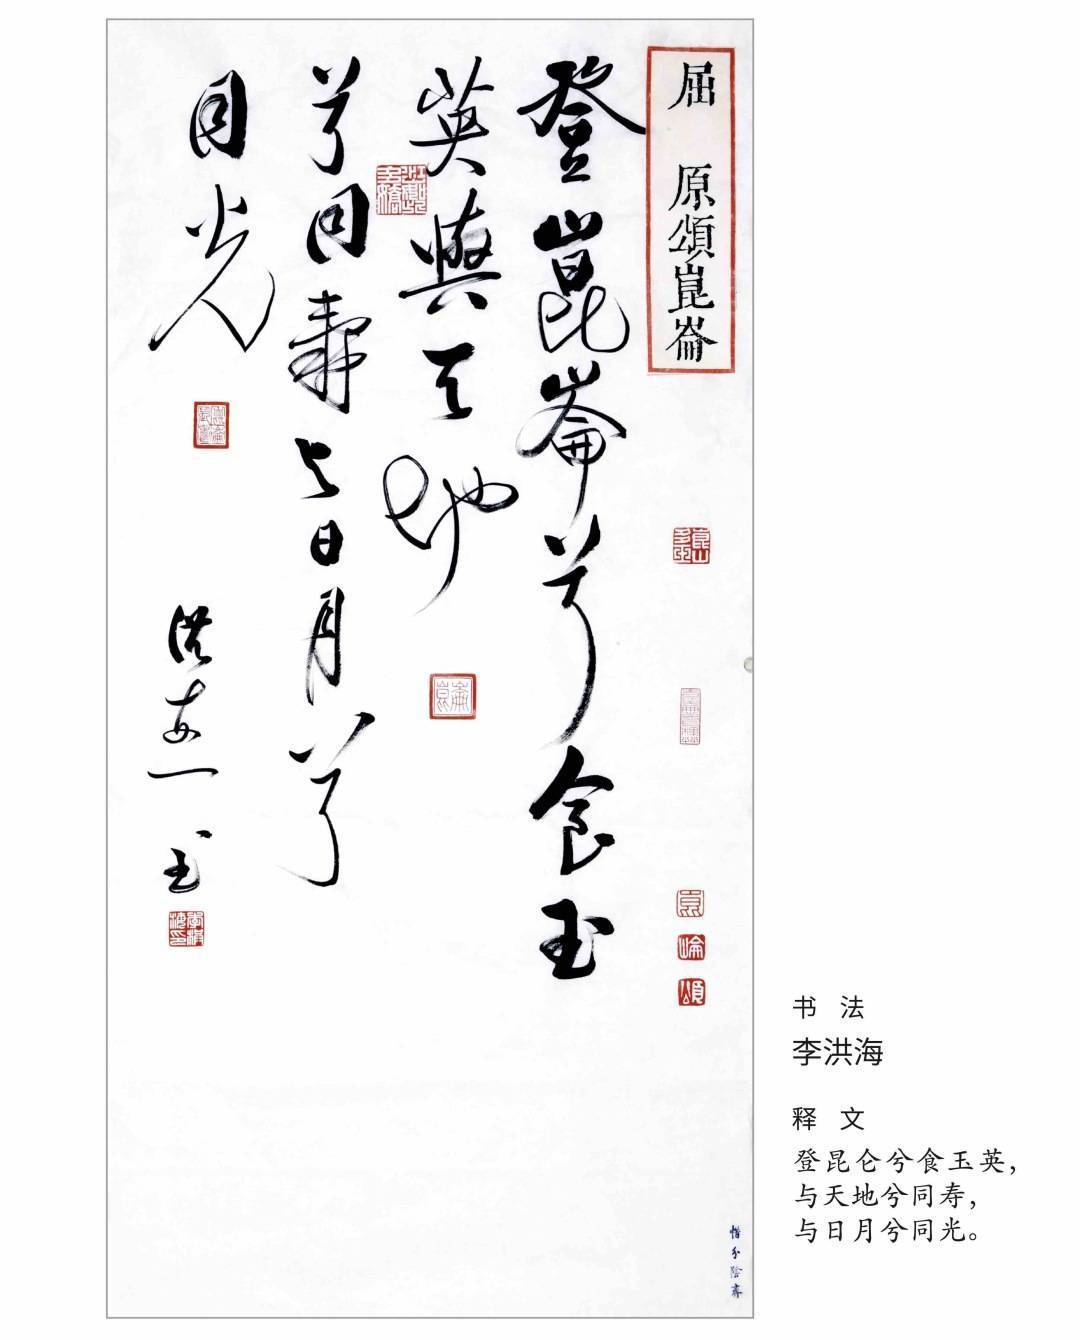 屈原頌崑崙
登崑崙兮食玉
英與天地
兮同壽与日月兮
同光
洪海一书
书 法
李洪海
释 文
登昆仑兮食玉英，
与天地兮同寿，
与日月兮同光。
惜分陰齋